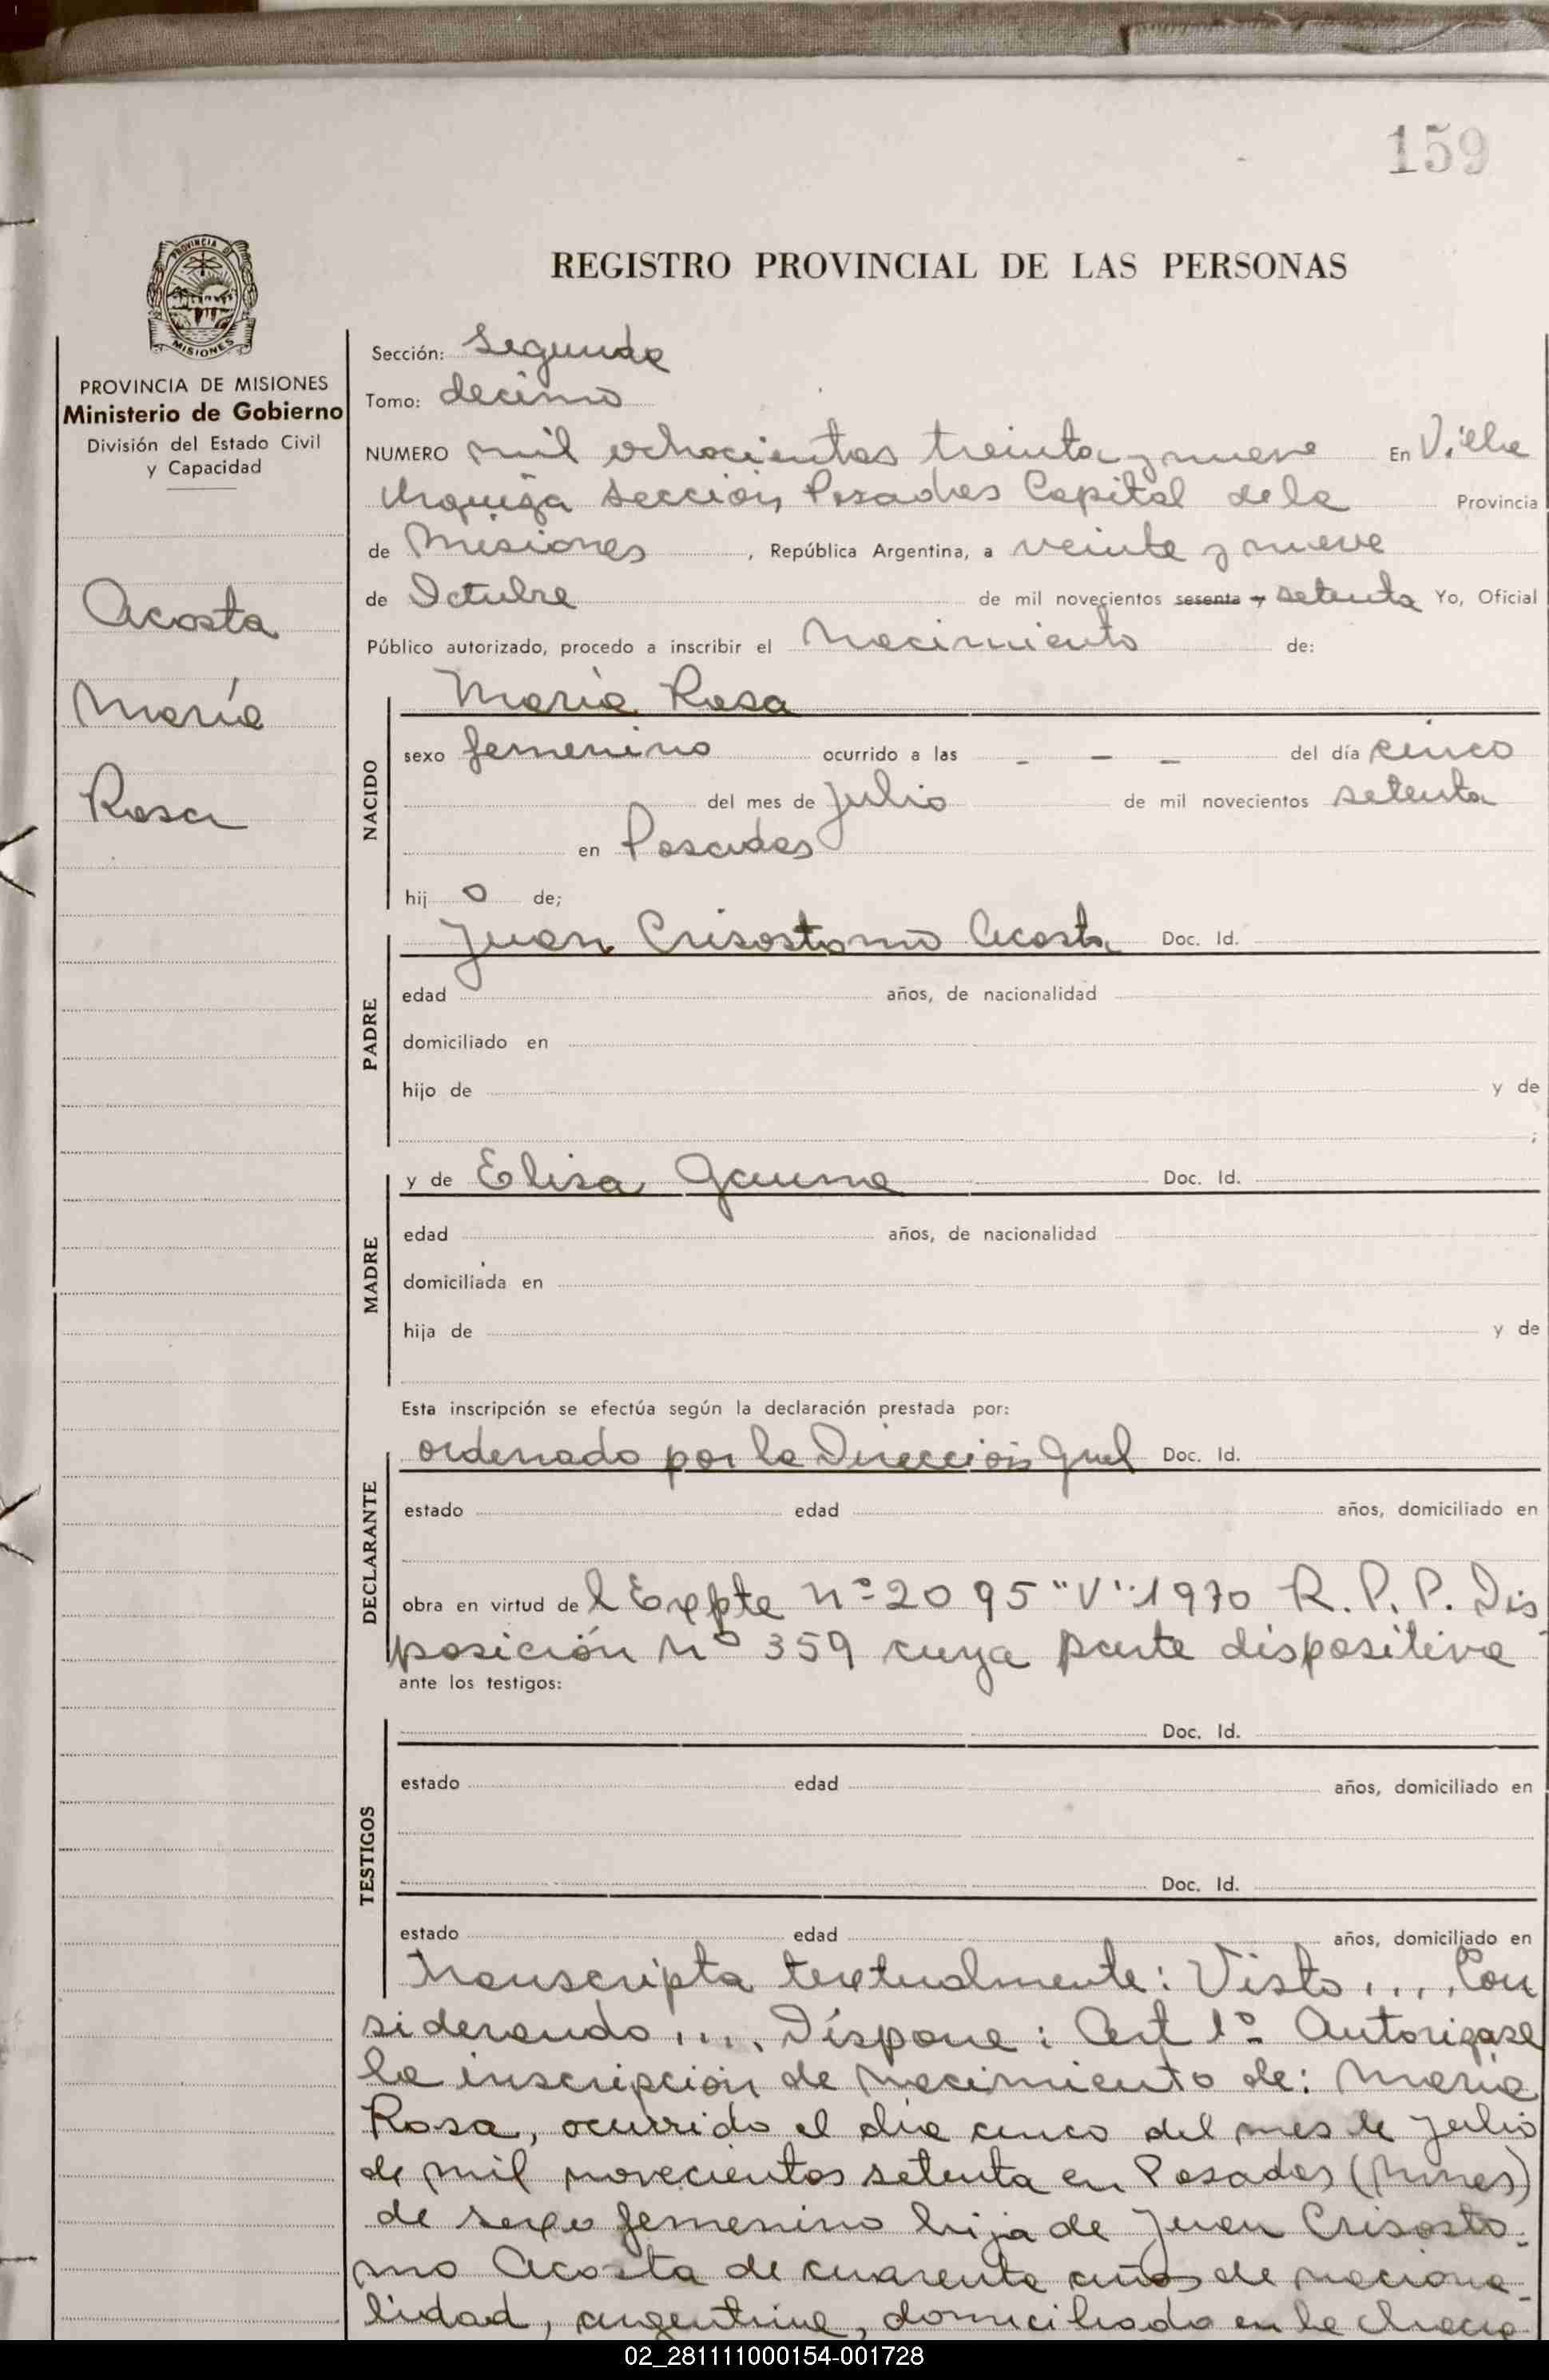 159
PROVINCIA DE
MISIONES
PROVINCIA DE MISIONES
Ministerio de Gobierno
División del Estado Civil
y Capacidad
Acosta
María
Rosa
REGISTRO PROVINCIAL DE LAS PERSONAS
Sección: Segunda
Tomo: decimo
NUMERO mil ochocientos treinta y nueve En Villa
Urquiza Sección Posadas Capital de la Provincia
de Misiones, República Argentina, a veinte y nueve
de Octubre de mil novecientos sesenta y setenta Yo, Oficial
Público autorizado, procedo a inscribir el Nacimiento de:
NACIDO
María Rosa
sexo femenino ocurrido a las - - - del día cinco
del mes de Julio de mil novecientos setenta
en Posadas
hij a de;
PADRE
Juan Crisostomo Acosta Doc. Id.
edad años, de nacionalidad
domiciliado en
hijo de y de
;
MADRE
y de Elisa Gauna Doc. Id.
edad años, de nacionalidad
domiciliada en
hija de y de
Esta inscripción se efectúa según la declaración prestada por:
DECLARANTE
ordenado por la Dirección Gral Doc. Id.
estado edad años, domiciliado en
obra en virtud de l Expte Nº 2095 "V" 1970 R. P. P. Dis
posición Nº 359 cuya parte dispositiva
ante los testigos:
TESTIGOS
Doc. Id.
estado edad años, domiciliado en
Doc. Id.
estado edad años, domiciliado en
transcripta textualmente: Visto .... Con
siderando .... Dispone: Art 1º Autorizase
la inscripción de Nacimiento de: María
Rosa, ocurrido el día cinco del mes de Julio
de mil novecientos setenta en Posadas (Mnes)
de sexo femenino hija de Juan Crisosto-
mo Acosta de cuarenta años de naciona-
lidad, argentina, domiciliado en la chacra
02_281111000154-001728